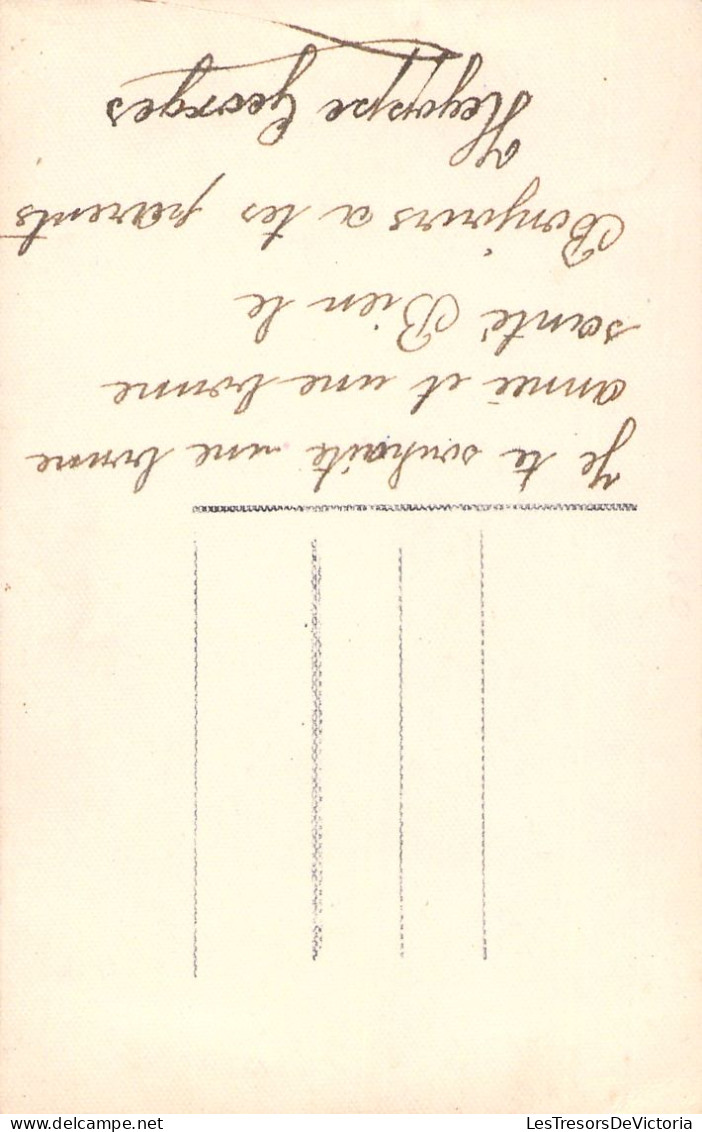 Je te souhaite une bonne
année et une bonne
santé Bien le
Bonjours a tes parents
Georges
delcampe.net
LesTresorsDeVictoria